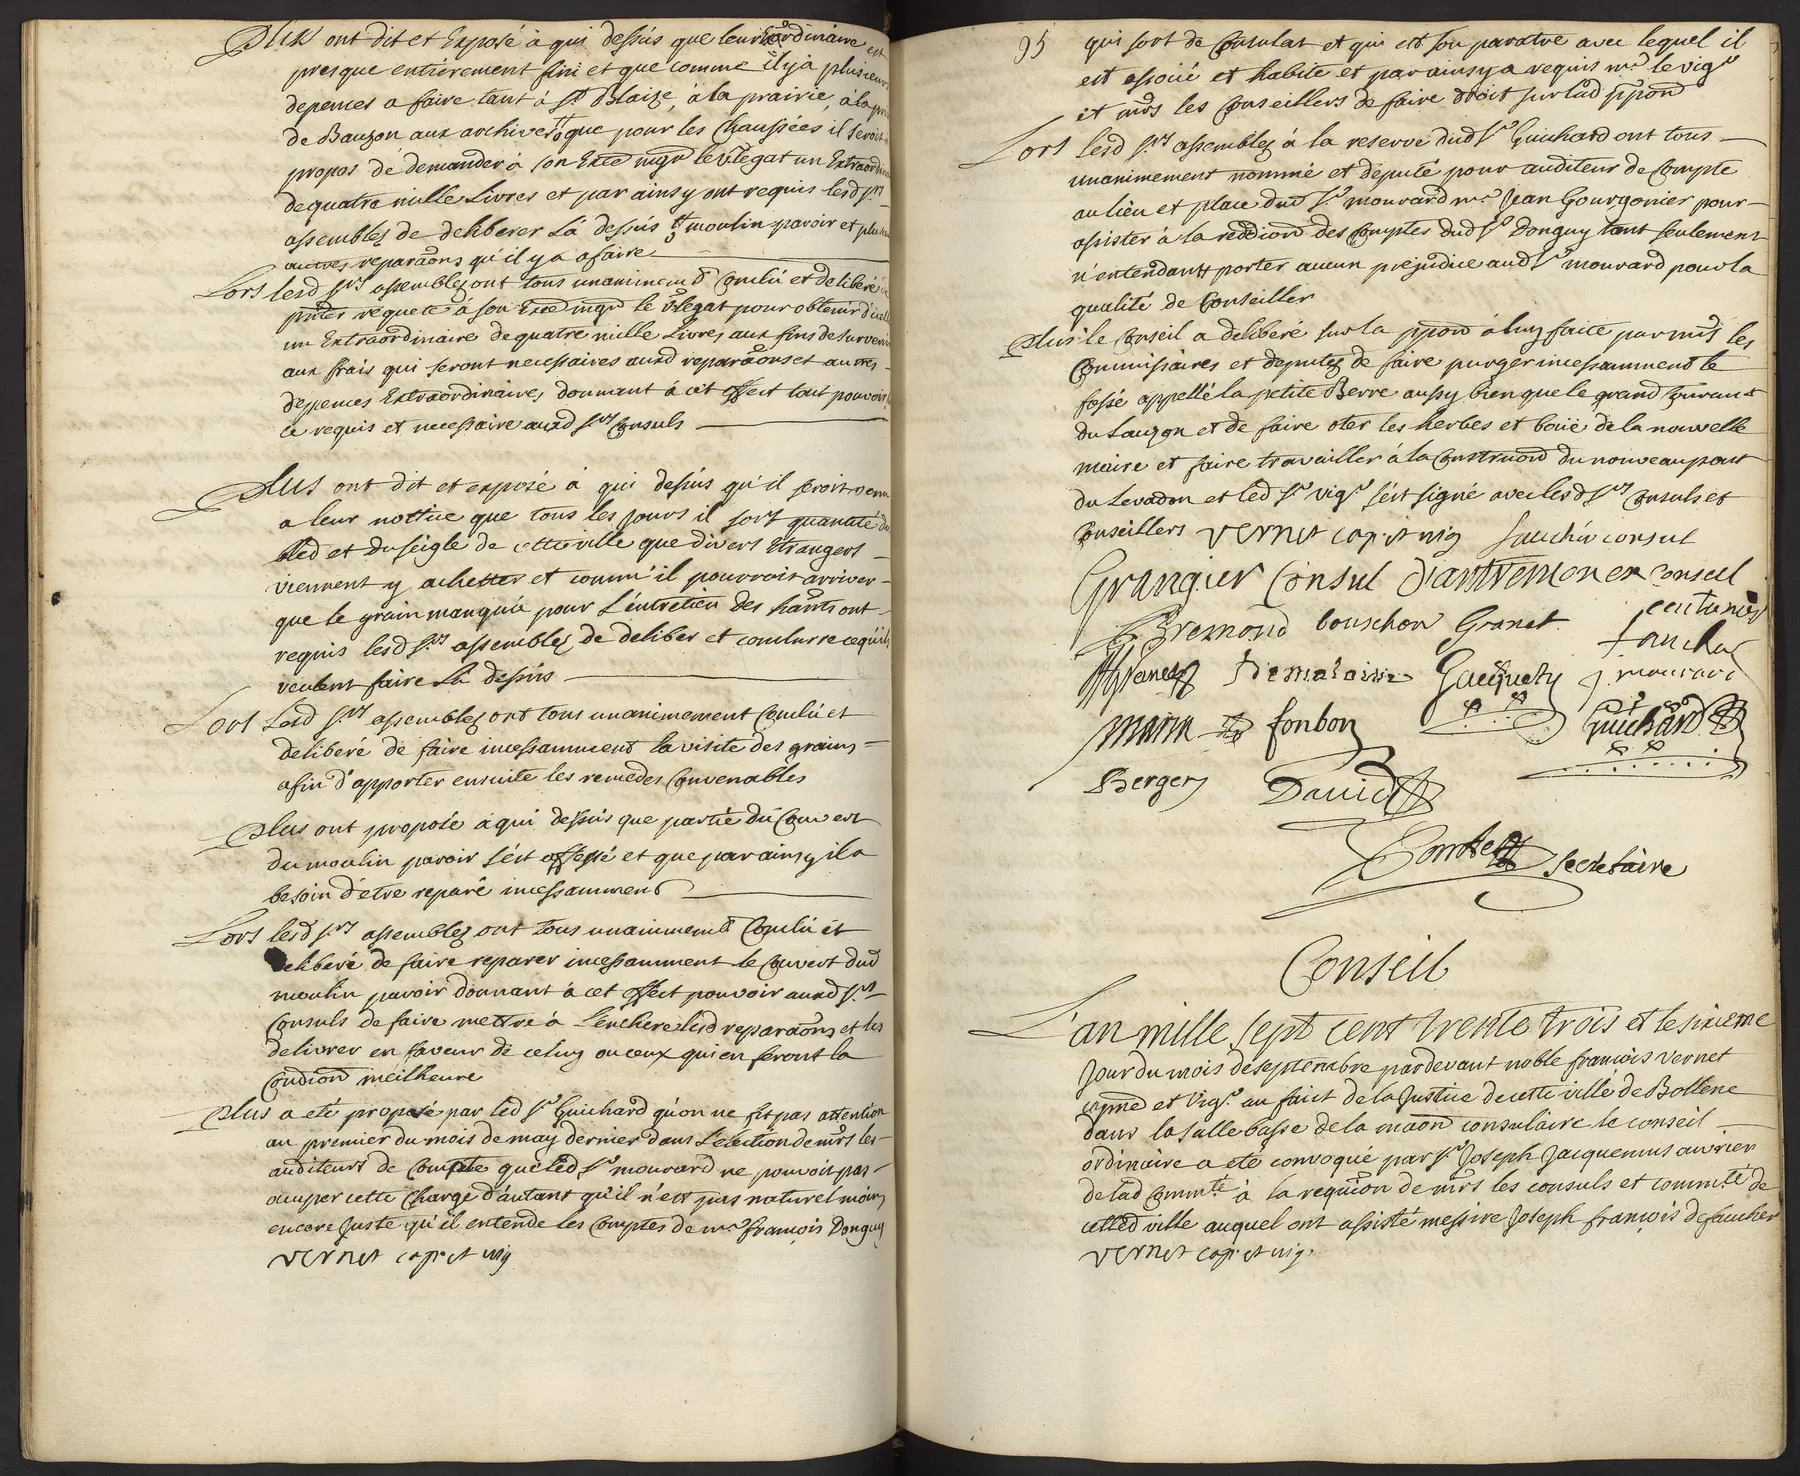 Plus ont dit et Exposé a qui dessus que leur Extraordinaire est
presque entierement fini et que comme il y a plusieurs
depences a faire tant à St Blaise, à la prairie, à la
de Bauzon aux archives que pour les Chaussées il seroit a
propos de demander à son Exce mgr le v.legat un Extraord
de quatre mille Livres et par ainsy ont requis lesd srs
assemblez de deliberer La dessus et moulin paroir et plusieurs
autres reparaons qu'il y a afaire
Lors lesd srs assemblez ont tous unanimemt Conclu et deliberé de
pnter requete à son Exce mgr le v.legat pour obtenir d'icelle
un Extraordinaire de quatre mille Livres aux fins de survenir
aux frais qui seront necessaires auxd reparaons et autres
depences Extraordinaires, donnant à cet effect tout pouvoir
ce requis et necessaire auxd srs Consuls
Plus ont dit et exposé à qui dessus qu'il seroit venu
a leur nottice que tous les jours il sort quantité de
bled et du seigle de cette ville que divers Etrangers
viennent y achetter et comm'il pourroit arriver
que le grain manquat pour L'entretien des hants ont
requis lesd srs assemblez de deliber et conclurre ce qu'ils
veulent faire La dessus
Lors Lesd srs assemblez ont tous unanimement Conclu et
deliberé de faire incessamment la visite des grains
afin d'apporter ensuite les remedes Convenables
Plus ont proposé a qui dessus que partie du Couvert
du moulin paroir s'est affessé et que par ainsy il a
besoin d'etre reparé incessamment
Lors lesd srs assemblez ont tous unanimemt Conclu et
deliberé de faire reparer incessamment le Couvert dud
moulin paroir donnant à cet effect pouvoir auxd srs
Consuls de faire mettre à L'enchere lesd reparaons et les
delivrer en faveur de celuy ou ceux qui en feront la
Condion meilheure
Plus a eté proposé par led sr Guichard qu'on ne fit pas attention
au premier du mois de may dernier dans L'election de mrs les
auditeurs de Compte que led sr mourard ne pouvoit pas
occuper cette Charge d'autant qu'il n'est pas naturel moins
encore Juste qu'il entende les Comptes de mr françois Donguy
Vernet cap. et vig
95
qui sort de Consulat et qui est son paratre avec lequel il
est associé et habite et par ainsy a requis mr le vigr
et mrs les Conseillers de faire droit sur lad ppon
Lors lesd srs assemblez à la reserve dud sr Guichard ont tous
unanimement nommé et deputé pour auditeur de Compte
au lieu et place dud sr mourard mr Jean Gourgonier pour
assister à la reddion des Comptes dud sr Donguy tant seulement
n'entendant porter aucun prejudice aud sr mourard pour la
qualité de Conseiller
Plus le Conseil a deliberé sur la ppon à luy faite par mrs les
Commissaires et deputez de faire purger incessamment le
fossé appellé la petite Berre aussy bien que le grand Courant
du Lauzon et de faire oter les herbes et boüe de la nouvelle
maire et faire travailler à la Construon du nouveau pont
du Levadon et led sr vigr s'est signé avec lesd srs Consuls et
Conseillers Vernet cap. et vig Fauchier consul
Grangier Consul D'antremon ex Consul
Bremond bouschon Granet
Gacquety j mourard
marin fonbon Guichard
Berger David
Combe secretaire
Conseil
L'an mille sept cent trente trois et le sixieme
Jour du mois de septembre pardevant noble francois Vernet
cappne et Vigr au faict de la Justice de cette ville de Bollene
dans la salle basse de la maon consulaire le conseil
ordinaire a eté convoqué par sr Joseph Jacquemus ouvrier
de lad Commté à la requion de mrs les consuls et commté de
cetted ville auquel ont assisté messire Joseph françois de faucher
Vernet cap. et vig.